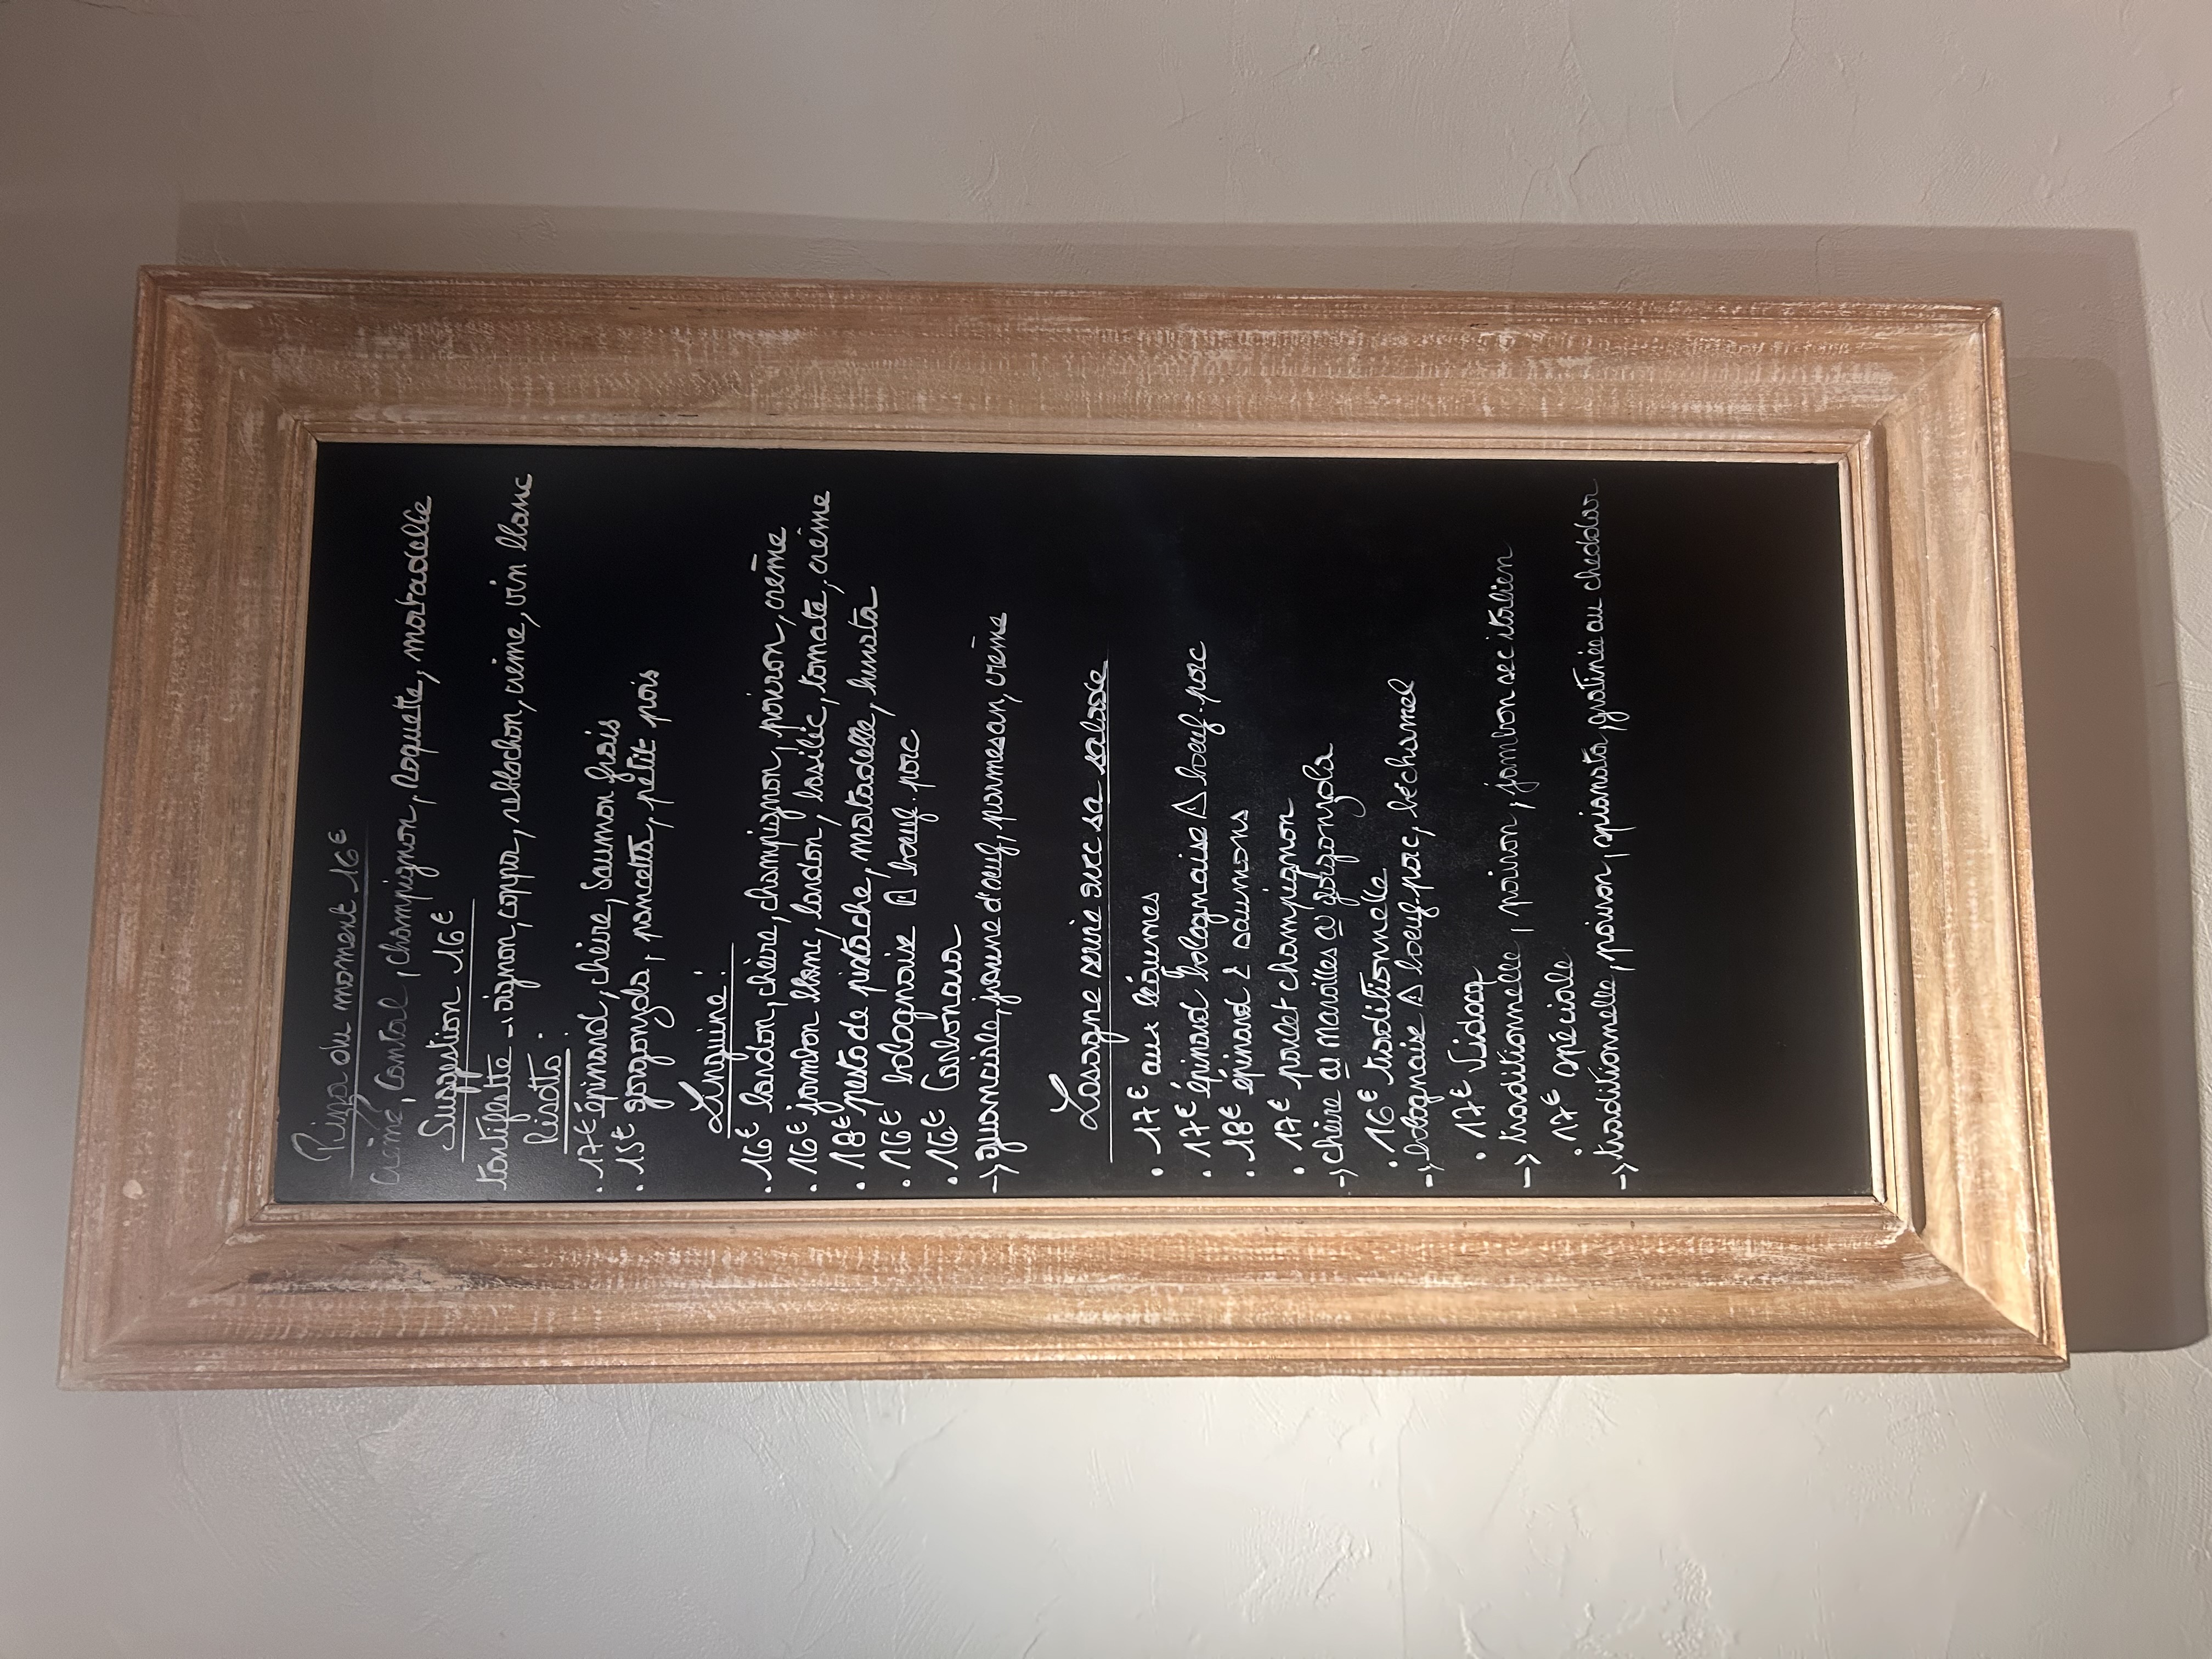 Pizza du moment 16€
crème, cantal, champignon, roquette, mortadelle
Suggestion 16€
tartiflette → oignon, coppa, reblochon, crème, vin blanc
Risotto :
• 17€ épinard, chèvre, saumon frais
• 15€ gorgonzola, pancetta, petit pois
Linguine :
• 16€ lardon, chèvre, champignon, poivron, crème
• 16€ jambon blanc, lardon, basilic, tomate, crème
• 18€ pesto de pistache, mortadelle, burrata
• 16€ bolognaise ⚠ boeuf-porc
• 16€ Carbonara
→ guanciale, jaune d'oeuf, parmesan, crème
Lasagne servie avec sa salade
• 17€ aux légumes
• 17€ épinard bolognaise ⚠ boeuf-porc
• 18€ épinard 2 saumons
• 17€ poulet champignon
→ chèvre ou maroilles ou gorgonzola
• 16€ traditionnelle
→ bolognaise ⚠ boeuf-porc, béchamel
• 17€ Vidocq
→ traditionnelle, poivron, jambon sec italien
• 17€ spéciale
→ traditionnelle, poivron, spianata, gratinée au cheddar